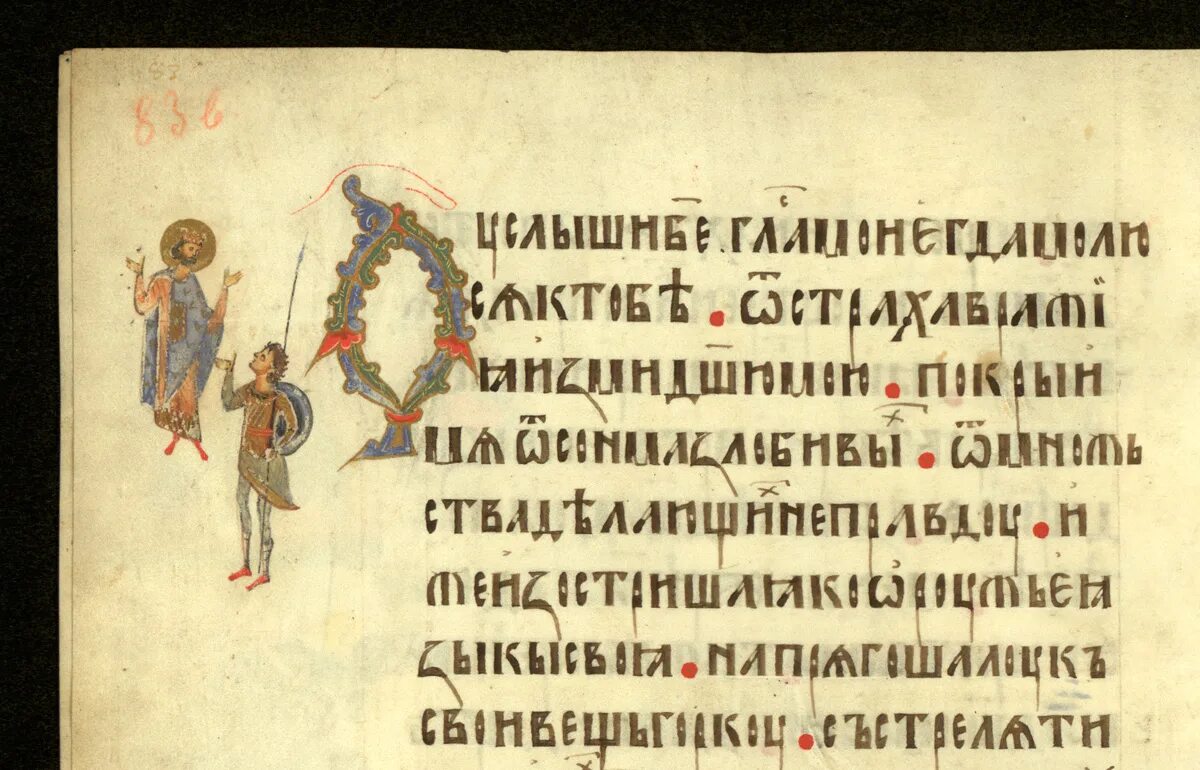 83
83 б
Оуслыши б҃е. глⷭ҇а мои егда молю
сѧ к тобѣ. ѿ страха вражї
ꙗ изми дш҃ю мою. покрыи
мѧ ѿ сонма злобивыⷯ. ѿ множь
ства дѣлающиⷯ неправдоу. и
же изостриша ꙗко ѡроужье ꙗ
зыкы своꙗ. напрѧгоша лоукъ
свои вещь горкоу. състрелѧти